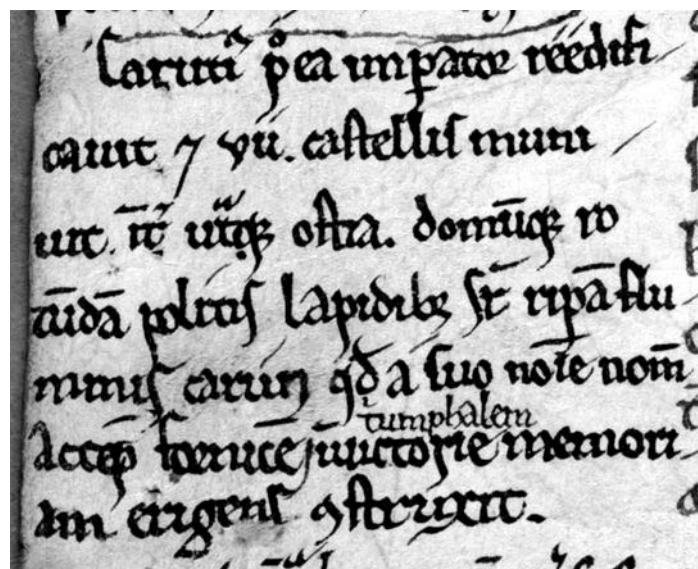 Caruti᷒ p᷒ ea imꝑator reedifi
cauit ⁊ vii. castellis muni
uit. int̄ utͣqꝫ ostia. domūqꝫ ro
tūdā politis lapidibꝫ sr̄ ripā flu
minis carun qđ a suo noīe nom̄
accep̄ fornicē in uictorie memori
triumphalem
am erigens ꝯstruxit.